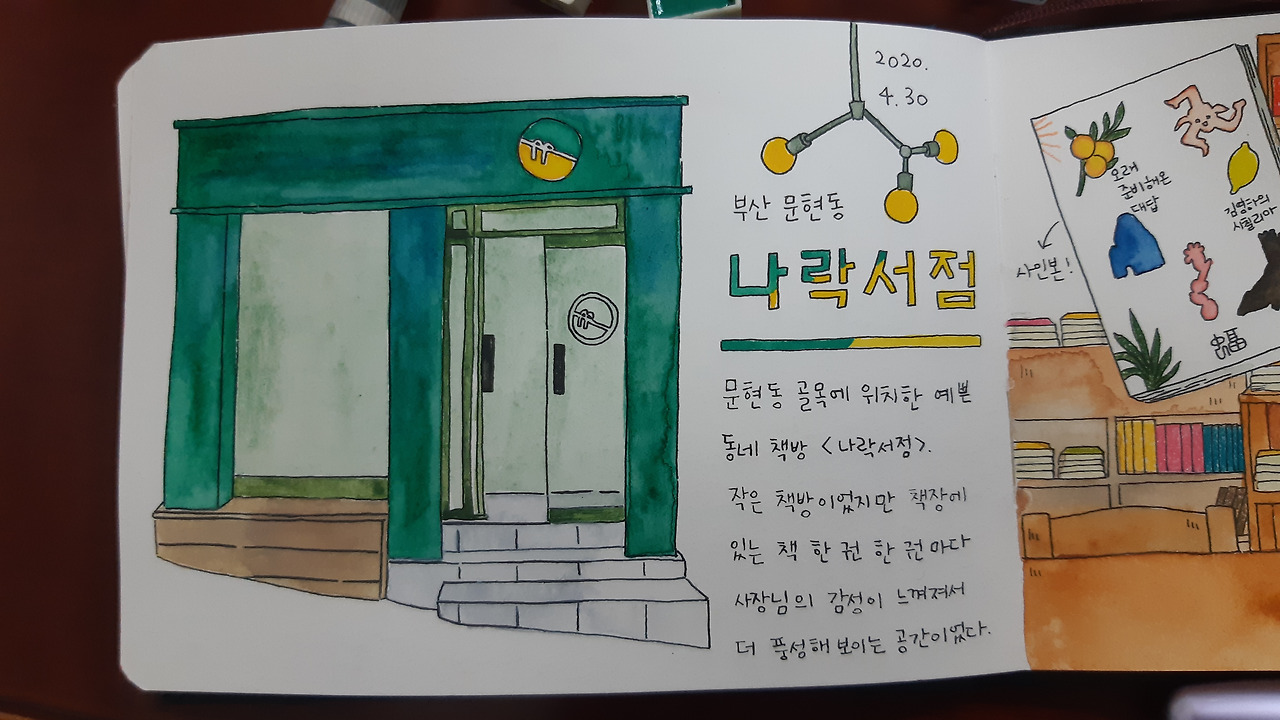 2020.
4.30
부산 문현동
나락서점
문현동 골목에 위치한 예쁜
동네 책방 <나락서점>.
작은 책방이었지만 책장에
있는 책 한 권 한 권마다
사장님의 감성이 느껴져서
더 풍성해 보이는 공간이었다.
오래
준비해온
대답
김영하의
시칠리아
사인본!